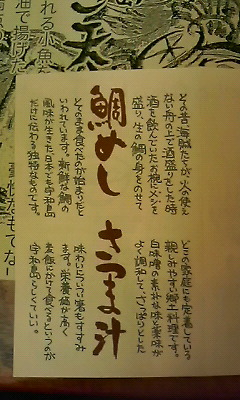 鯛めし
その昔海賊たちが、火の使え
ない舟の上で酒盛りをした時
酒を飲んでいたお椀にメシを
盛り、生の鯛の身をのせて
そのまま食べたのが始まりと
いわれています。新鮮な鯛の
風味が生きた、日本でも宇和島
だけに伝わる独特なものです。
さつま汁
どこの家庭にも定着している
親しみやすい郷土料理です。
白味噌の素朴な味と薬味が
よく調和して、さっぱりとした
味わいについつい箸もすすみ
ます。栄養価が高く
麦飯にかけて食べるというのが
宇和島らしくていい。
油で揚げた